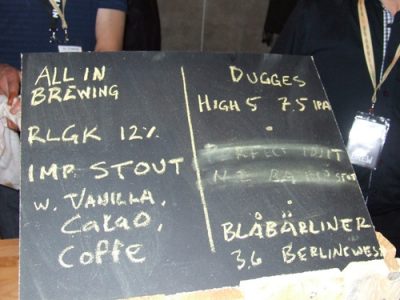 ALL IN
BREWING
RLGK 12%
IMP. STOUT
W. VANILLA,
CACAO,
COFFE
DUGGES
HIGH 5 7.5 IPA
BLÅBÄRLINER
3,6 BERLINERWEISS